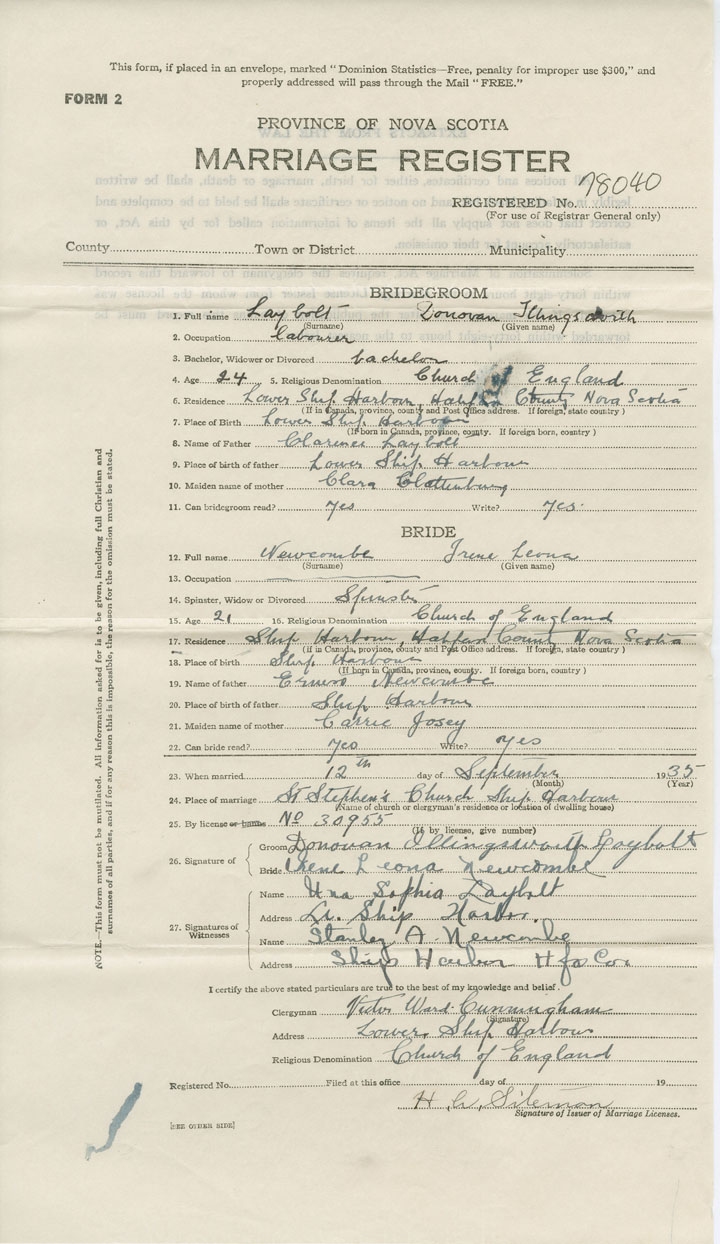 This form, if placed in an envelope, marked "Dominion Statistics—Free, penalty for improper use $300," and
properly addressed will pass through the Mail "FREE."
FORM 2
PROVINCE OF NOVA SCOTIA
MARRIAGE REGISTER
REGISTERED No. 78040
(For use of Registrar General only)
County Town or District Municipality
BRIDEGROOM
1. Full name Laybolt Donovan Illingsworth
(Surname) (Given name)
2. Occupation labourer
3. Bachelor, Widower or Divorced bachelor
4. Age 24 5. Religious Denomination Church of England
6. Residence Lower Ship Harbour, Halifax County Nova Scotia
(If in Canada, province, county and Post Office address. If foreign, state country)
7. Place of Birth Lower Ship Harbour
(If born in Canada, province, county. If foreign born, country)
8. Name of Father Clarence Laybolt
9. Place of birth of father Lower Ship Harbour
10. Maiden name of mother Clara Clattenburg
11. Can bridegroom read? yes Write? yes.
BRIDE
12. Full name Newcombe Irene Leona
(Surname) (Given name)
13. Occupation
14. Spinster, Widow or Divorced Spinster
15. Age 21 16. Religious Denomination Church of England
17. Residence Ship Harbour, Halifax County Nova Scotia
(If in Canada, province, county and Post Office address. If foreign, state country)
18. Place of birth Ship Harbour
(If born in Canada, province, county. If foreign born, country)
19. Name of father Ernest Newcombe
20. Place of birth of father Ship Harbour
21. Maiden name of mother Carrie Josey
22. Can bride read? yes Write? yes
23. When married 12th day of September 1935
(Month) (Year)
24. Place of marriage St Stephen's Church Ship Harbour
(Name of church or clergyman's residence or location of dwelling house)
25. By license or banns No 30955
(If by license, give number)
26. Signature of
Groom Donovan Illingsworth Laybolt
Bride Irene Leona Newcombe
27. Signatures of Witnesses
Name Una Sophia Laybolt
Address Lr. Ship Harbor.
Name Stanley A. Newcombe
Address Ship Harbor Hfx Co.
I certify the above stated particulars are true to the best of my knowledge and belief.
Clergyman Victor Ward Cunningham
(Signature)
Address Lower Ship Harbour
Religious Denomination Church of England
Registered No. Filed at this office day of 19
H. Siteman
Signature of Issuer of Marriage Licenses.
[SEE OTHER SIDE]
NOTE.—This form must not be mutilated. All information asked for is to be given, including full Christian and
surnames of all parties, and if for any reason this is impossible, the reason for the omission must be stated.